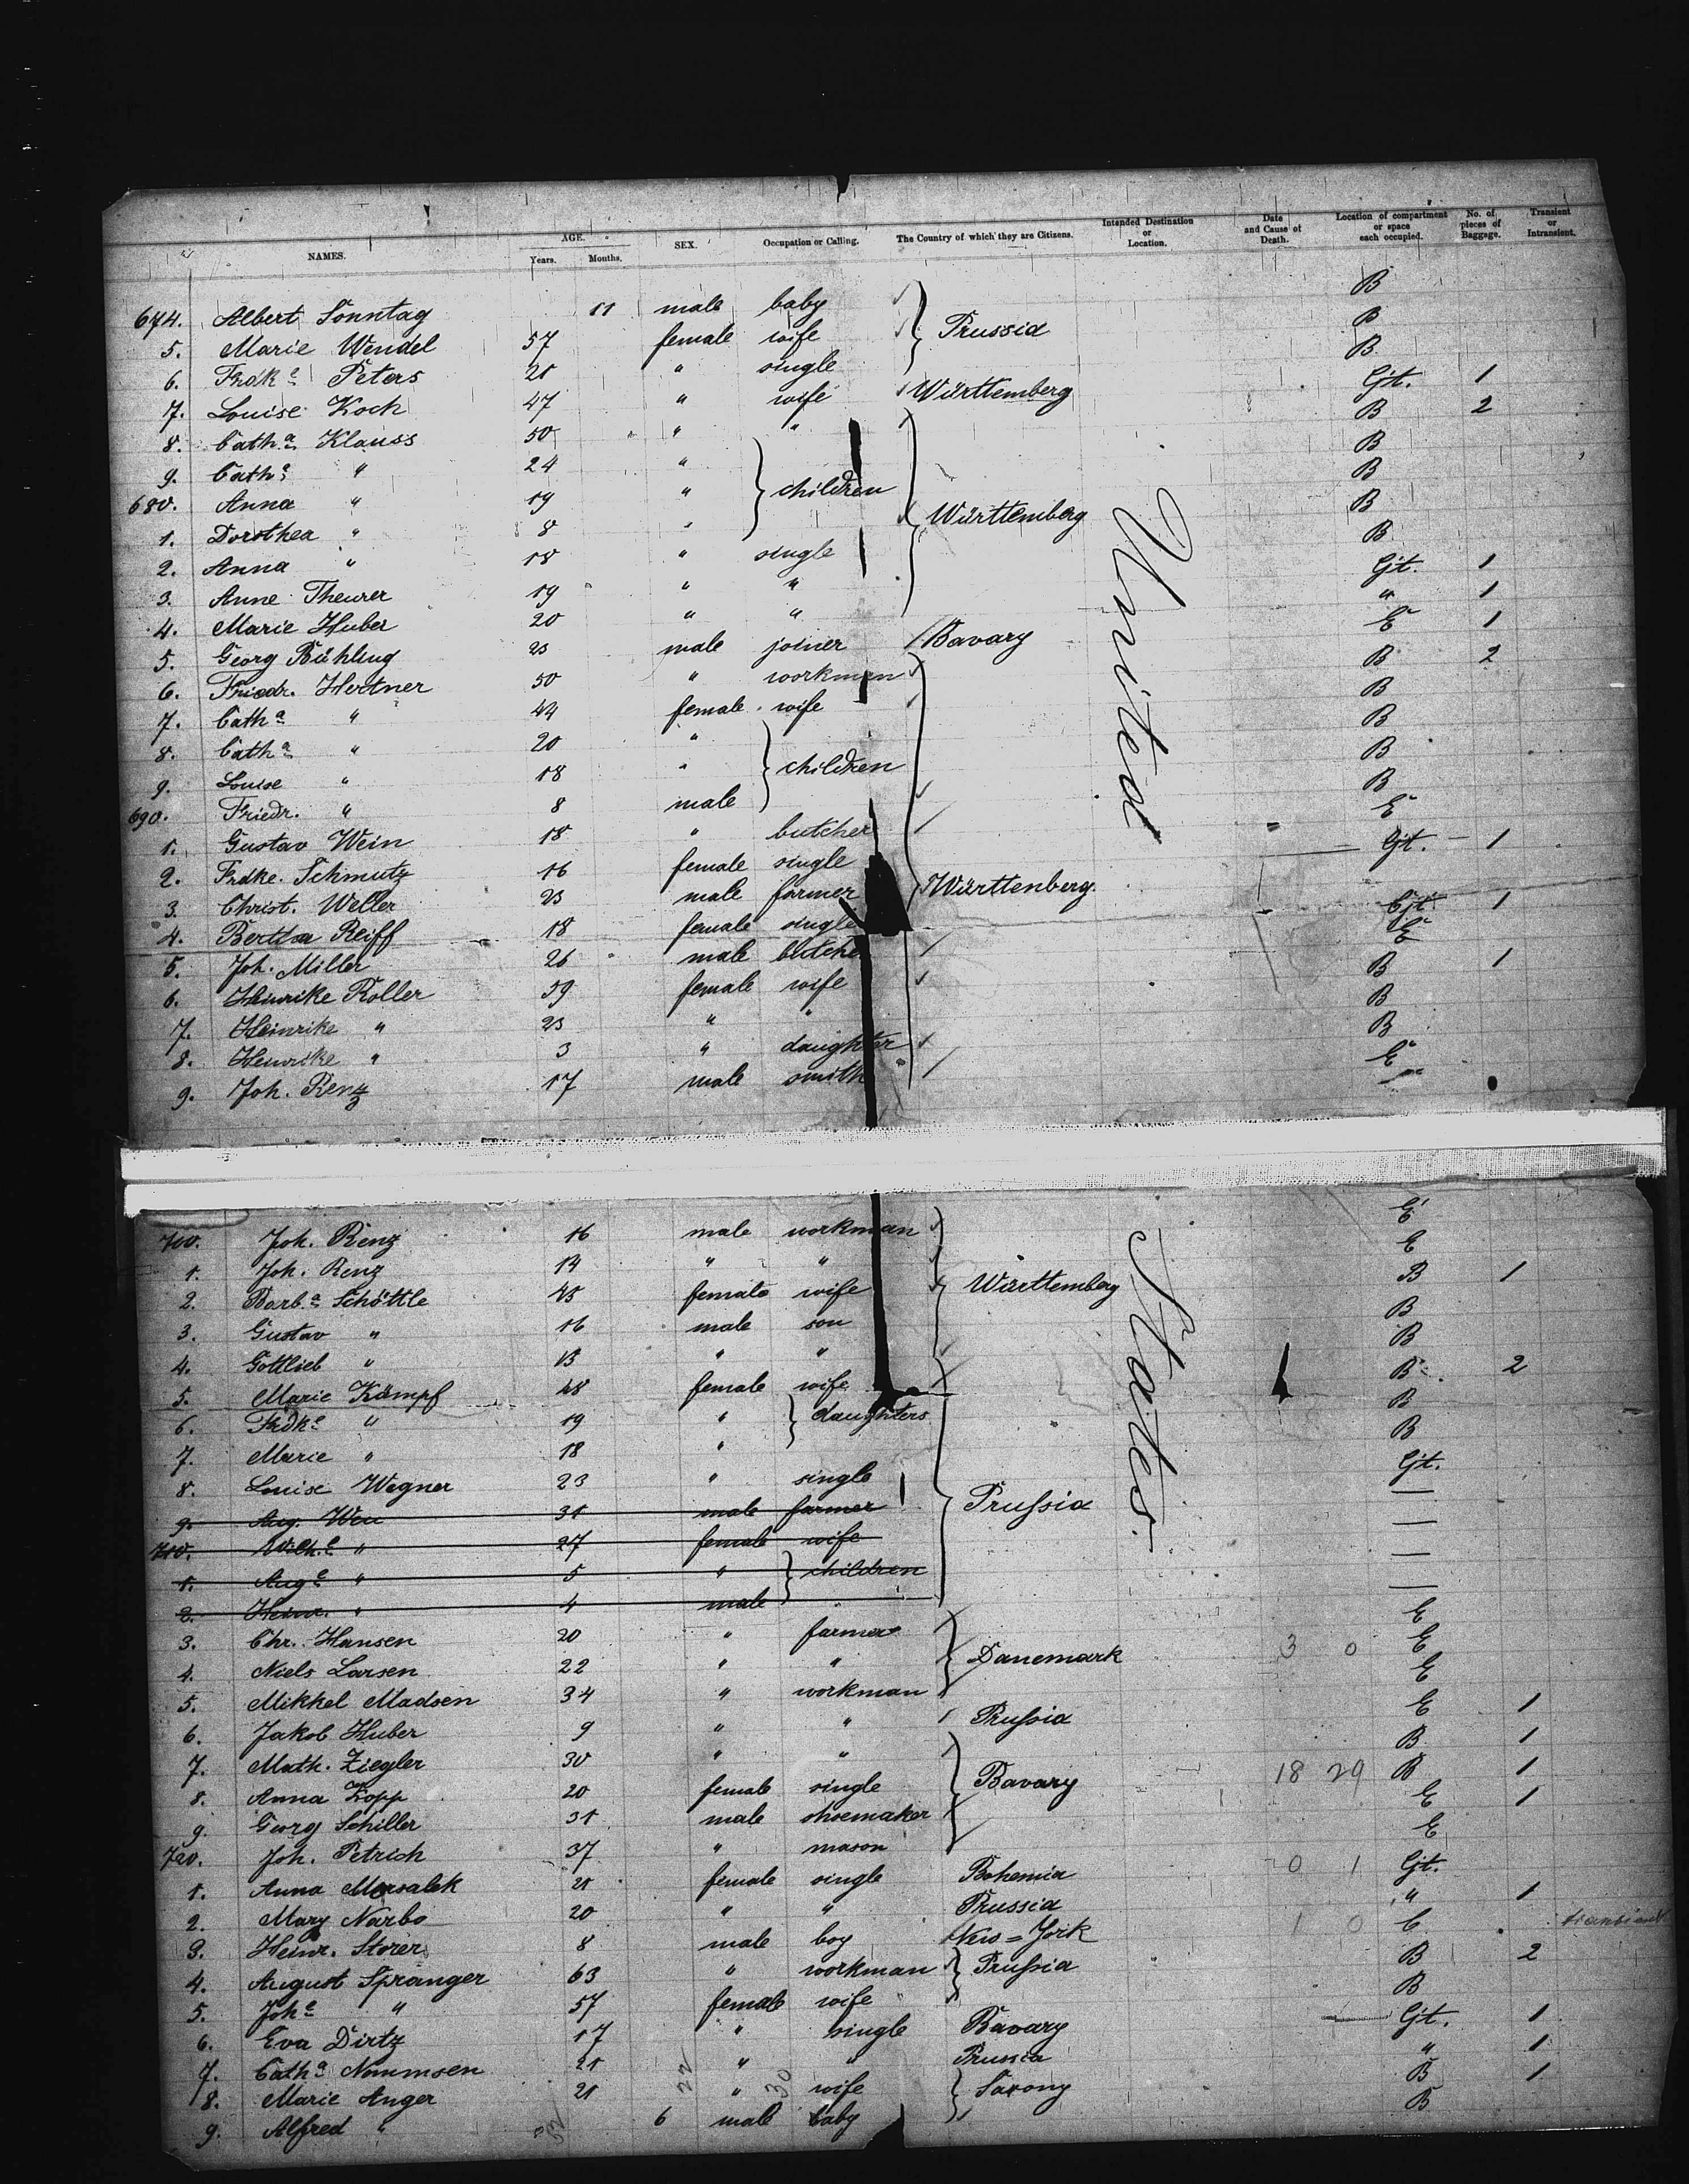 NAMES. AGE. Years. Months. SEX. Occupation or Calling. The Country of which they are Citizens. Intended Destination or Location. Date and Cause of Death. Location of compartment or space each occupied. No. of pieces of Baggage. Transient or Intransient.
674. Albert Sonntag 11 male baby B
5. Marie Wendel 57 female wife Prussia B
6. Frdke Peters 21 " single B
7. Louise Koch 47 " wife Württemberg Gt. 1
8. Catha Klauss 50 " " B 2
9. Catha " 24 " B
680. Anna " 19 " children B
1. Dorothea " 8 " Württemberg B
2. Anna " 18 " single B
3. Anne Theurer 19 " " Gt. 1
4. Marie Huber 20 " " " 1
5. Georg Bühling 23 male joiner Bavary E 1
6. Friedr. Hertner 50 " workman B 2
7. Catha " 44 female wife B
8. Catha " 20 " B
9. Louise " 18 " children B
690. Friedr. " 8 male B
1. Gustav Wein 18 " butcher E
2. Frdke. Schmutz 16 female single Gt. 1
3. Christ. Weller 23 male farmer Württenberg.
4. Bertha Reiff 18 female single Gt. 1
5. Joh. Miller 26 male butcher E
6. Heinrike Roller 59 female wife B 1
7. Heinrike " 23 " " B
8. Heinrike " 3 " daughter B
9. Joh. Renz 17 male smith E
United
700. Joh. Renz 16 male workman E
1. Joh. Renz 14 " " E
2. Barba Schöttle 45 female wife Württemberg B 1
3. Gustav " 16 male son B
4. Gottlieb " 13 " " B
5. Marie Kämpf 48 female wife B 2
6. Frdke " 19 " daughters B
7. Marie " 18 " B
8. Louise Wegner 23 " single Gt.
9. Aug. 31 male farmer Prussia —
710. Wilhe " 27 female wife —
1. Auge " 5 " children —
2. Heinr. " 4 male —
3. Chr. Hansen 20 " farmer E
4. Niels Larsen 22 " " Danemark 3 0 E
5. Mikkel Madsen 34 " workman E
6. Jakob Huber 9 " " Prussia E 1
7. Math. Ziegler 30 " " B 1
8. Anna Zopp 20 female single Bavary 18 29 B 1
9. Georg Schiller 31 male shoemaker E 1
720. Joh. Petrich 37 " mason E
1. Anna Marsalek 21 female single Bohemia 0 1 Gt.
2. Mary Narbo 20 " " Prussia " 1
3. Heinr. Storer 8 male boy New=York 1 0 C transient
4. August Spranger 63 " workman Prussia B 2
5. Johe " 57 female wife B
6. Eva Dirtz 17 " single Bavary Gt. 1
7. Catha Nommsen 21 " " Prussia " 1
8. Marie Anger 21 " wife Saxony B 1
9. Alfred " 6 male baby B
22 30
States.